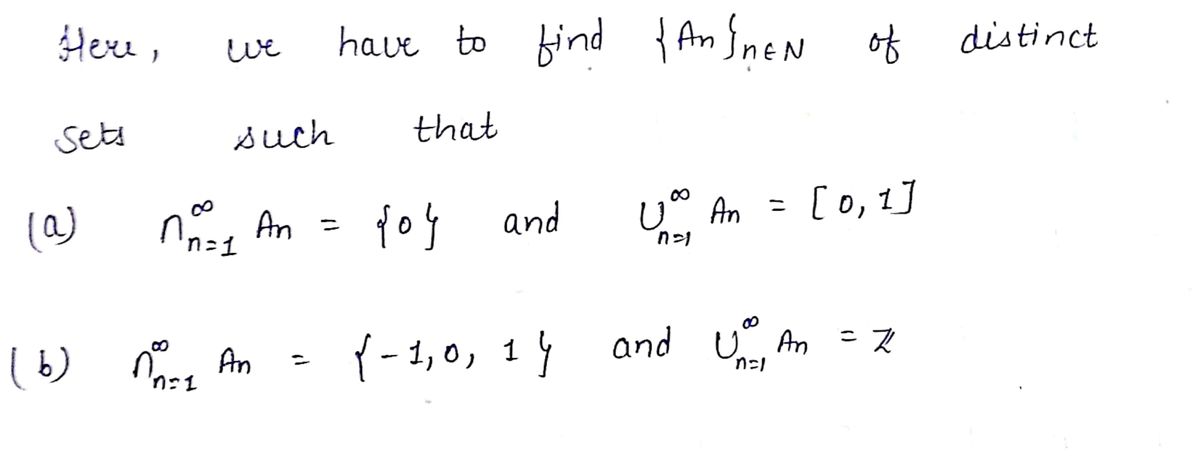 Here, we have to find {An}n∈N of distinct
sets such that
(a) ∩∞n=1 An = {0} and ∪∞n=1 An = [0, 1]
(b) ∩∞n=1 An = {-1, 0, 1} and ∪∞n=1 An = ℤ